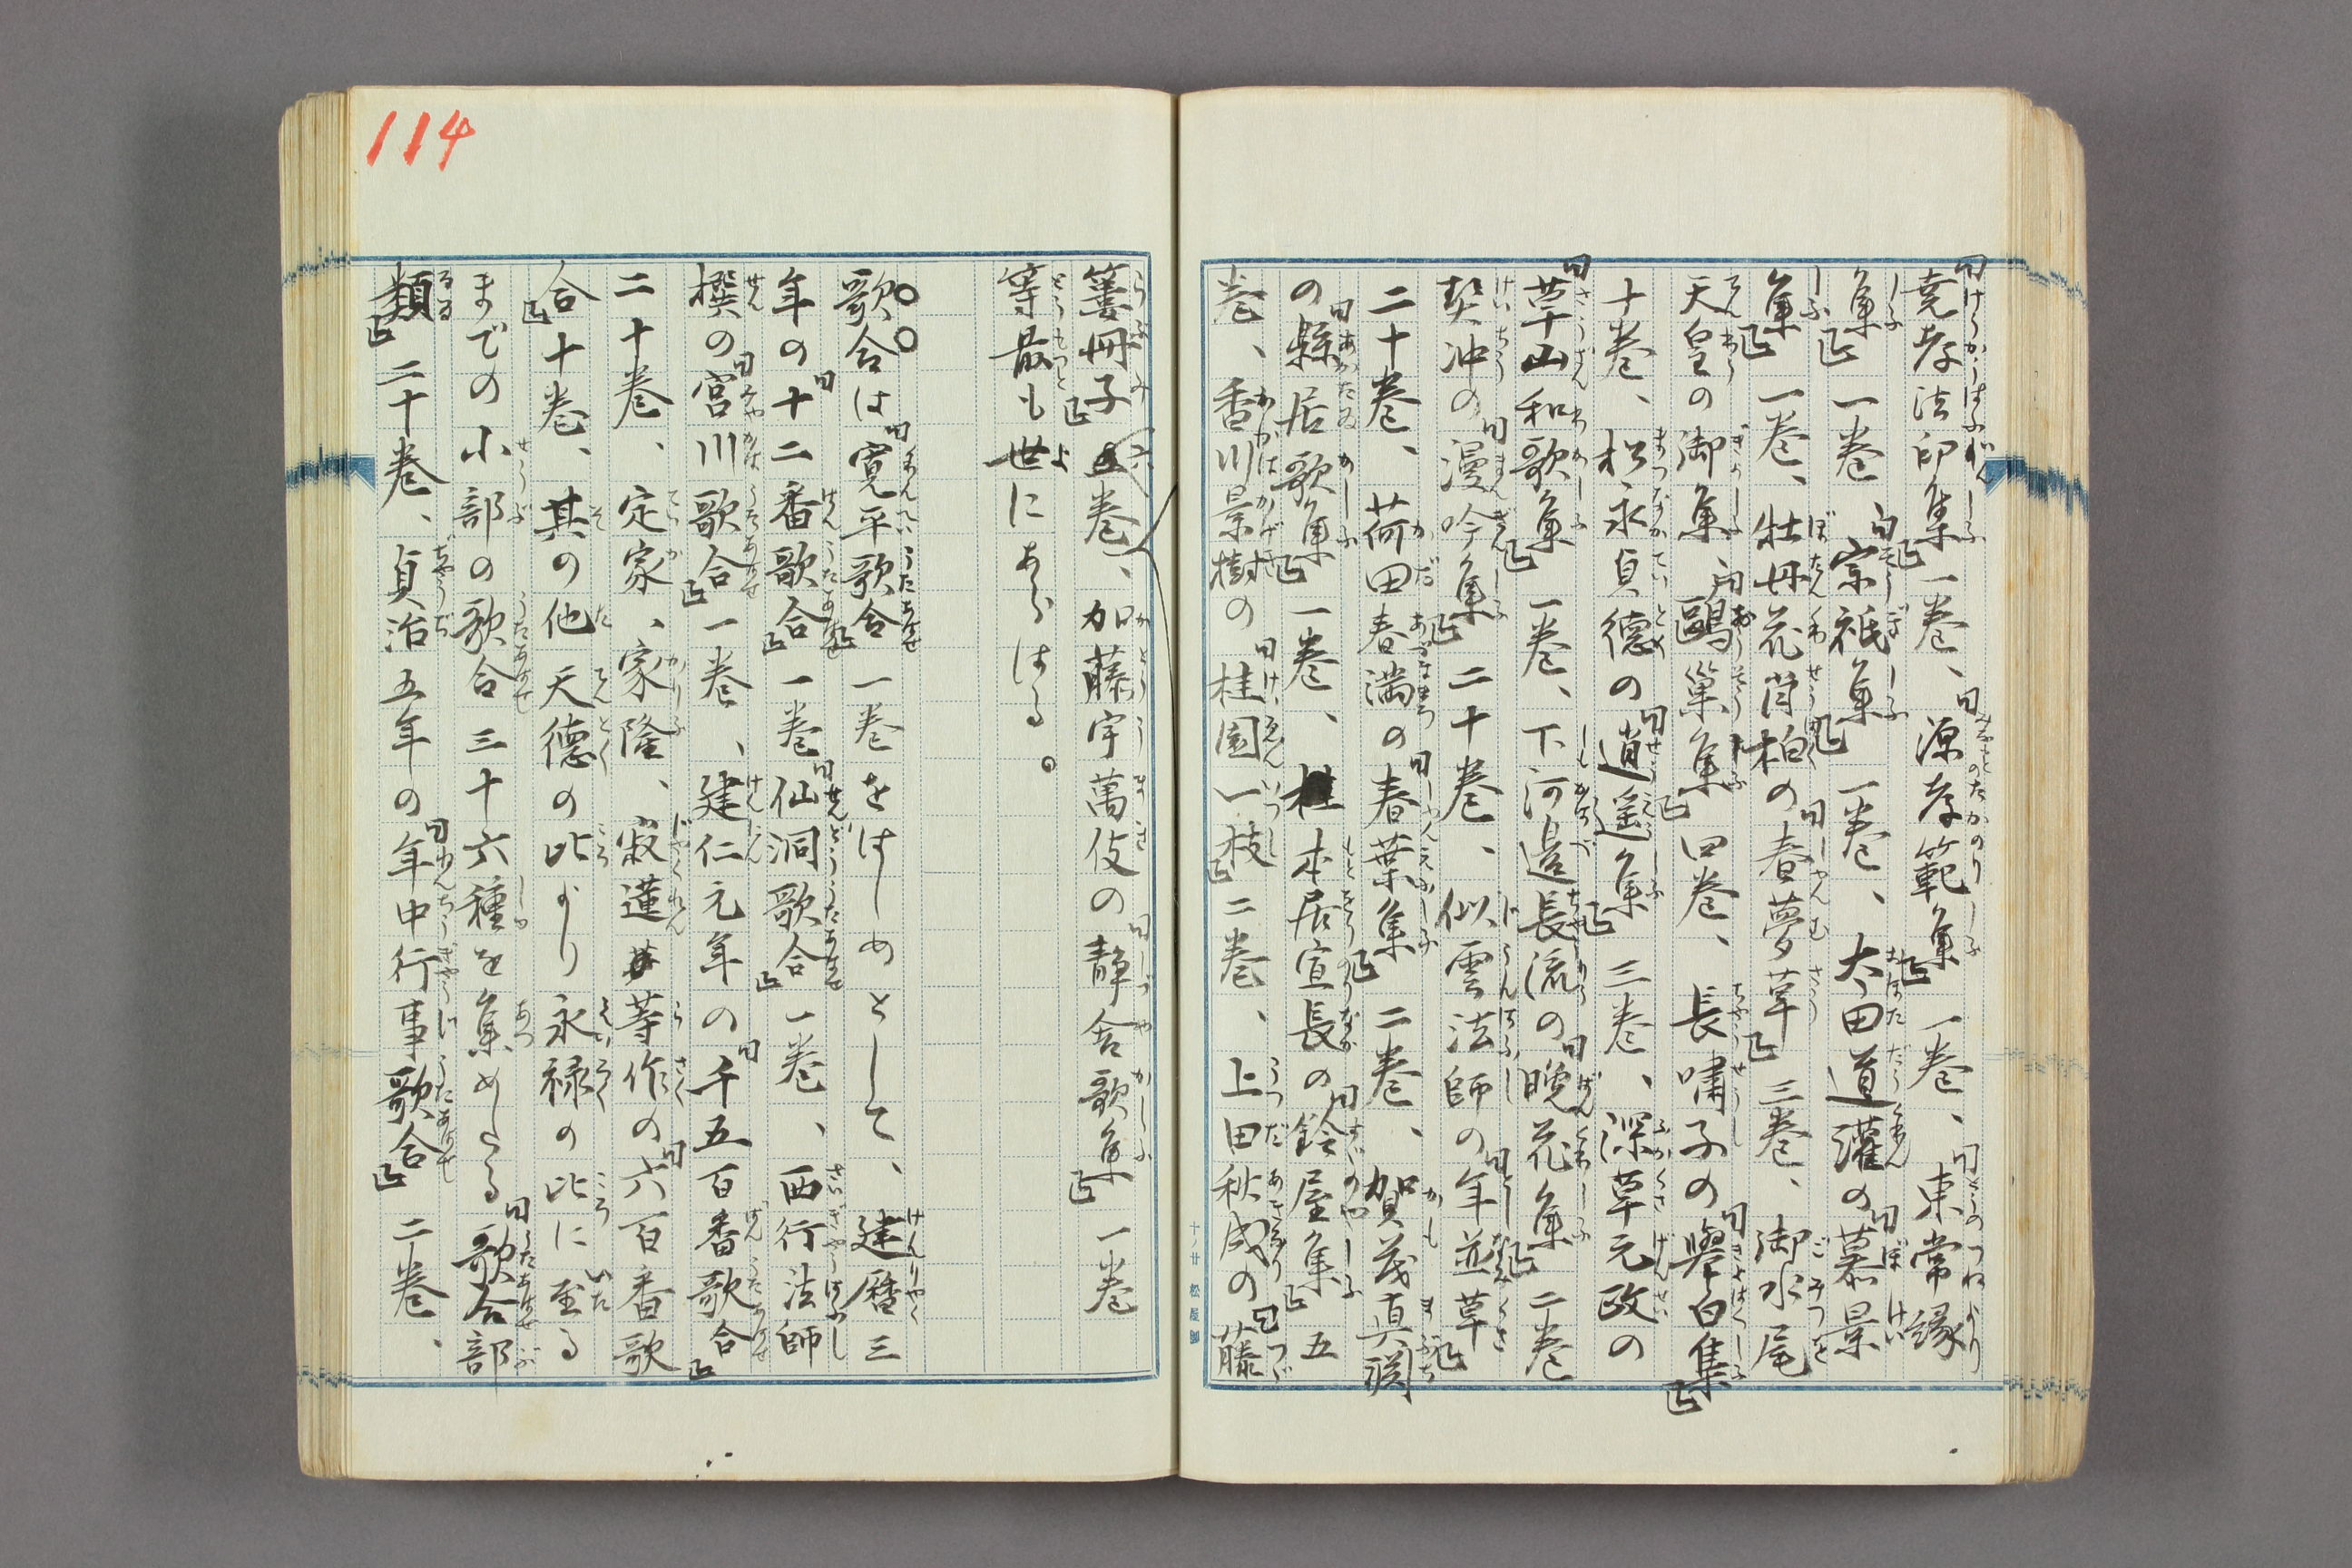 「堯孝法印集」一巻、「源孝範集」一巻、「東常縁
集」一巻、「宗祇集」一巻、太田道灌の「慕景
集」一巻、牡丹花肖柏の「春夢草」三巻、御水尾
天皇の御集「鷗巢集」四巻、長嘯子の「擧白集」
十巻、松永貞德の「逍遥集」三巻、深草元政の
「草山和歌集」一巻、下河邊長流の「晩花集」二巻
契冲の「漫吟集」二十巻、似雲法師の「年並草」
二十巻、荷田春滿の「春葉集」二巻、賀茂真淵
の「縣居歌集」一巻、本居宣長の「鈴屋集」五
巻、香川景樹の「桂園一枝」二巻、上田秋成の「藤
簍冊子」巻、加藤宇萬伎の「静舎歌集」一巻
等最も世にあらはる。
歌合は「寛平歌合」一巻をはじめとして、建暦三
年の「十二番歌合」一巻「仙洞歌合」一巻、西行法師
撰の「宮川歌合」一巻、建仁元年の「千五百番歌合」
二十巻、定家、家隆、寂蓮等作の「六百番歌
合」十巻、其の他天德の比より永禄の比に至る
までの小部の歌合三十六種を集めたる「歌合部
類」二十巻、貞治五年の「年中行事歌合」二巻、
114